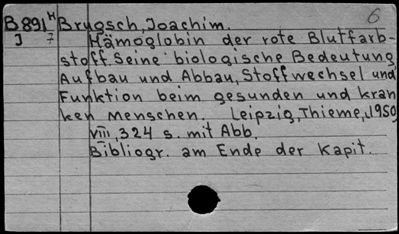 6
B891H Brugsch, Joachim.
J 7 Hämoglobin der rote Blutfarb-
stoff. Seine biologische Bedeutung
Aufbau und Abbau, Stoffwechsel und
Funktion beim gesunden und kran
ken Menschen. Leipzig, Thieme, 1950
VIII, 324 s. mit Abb.
Bibliogr. am Ende der Kapit.